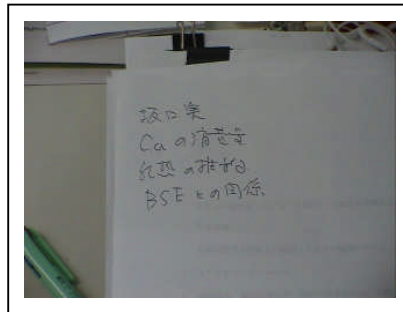 坂口実
Caの消費量
の推移
BSEとの関係